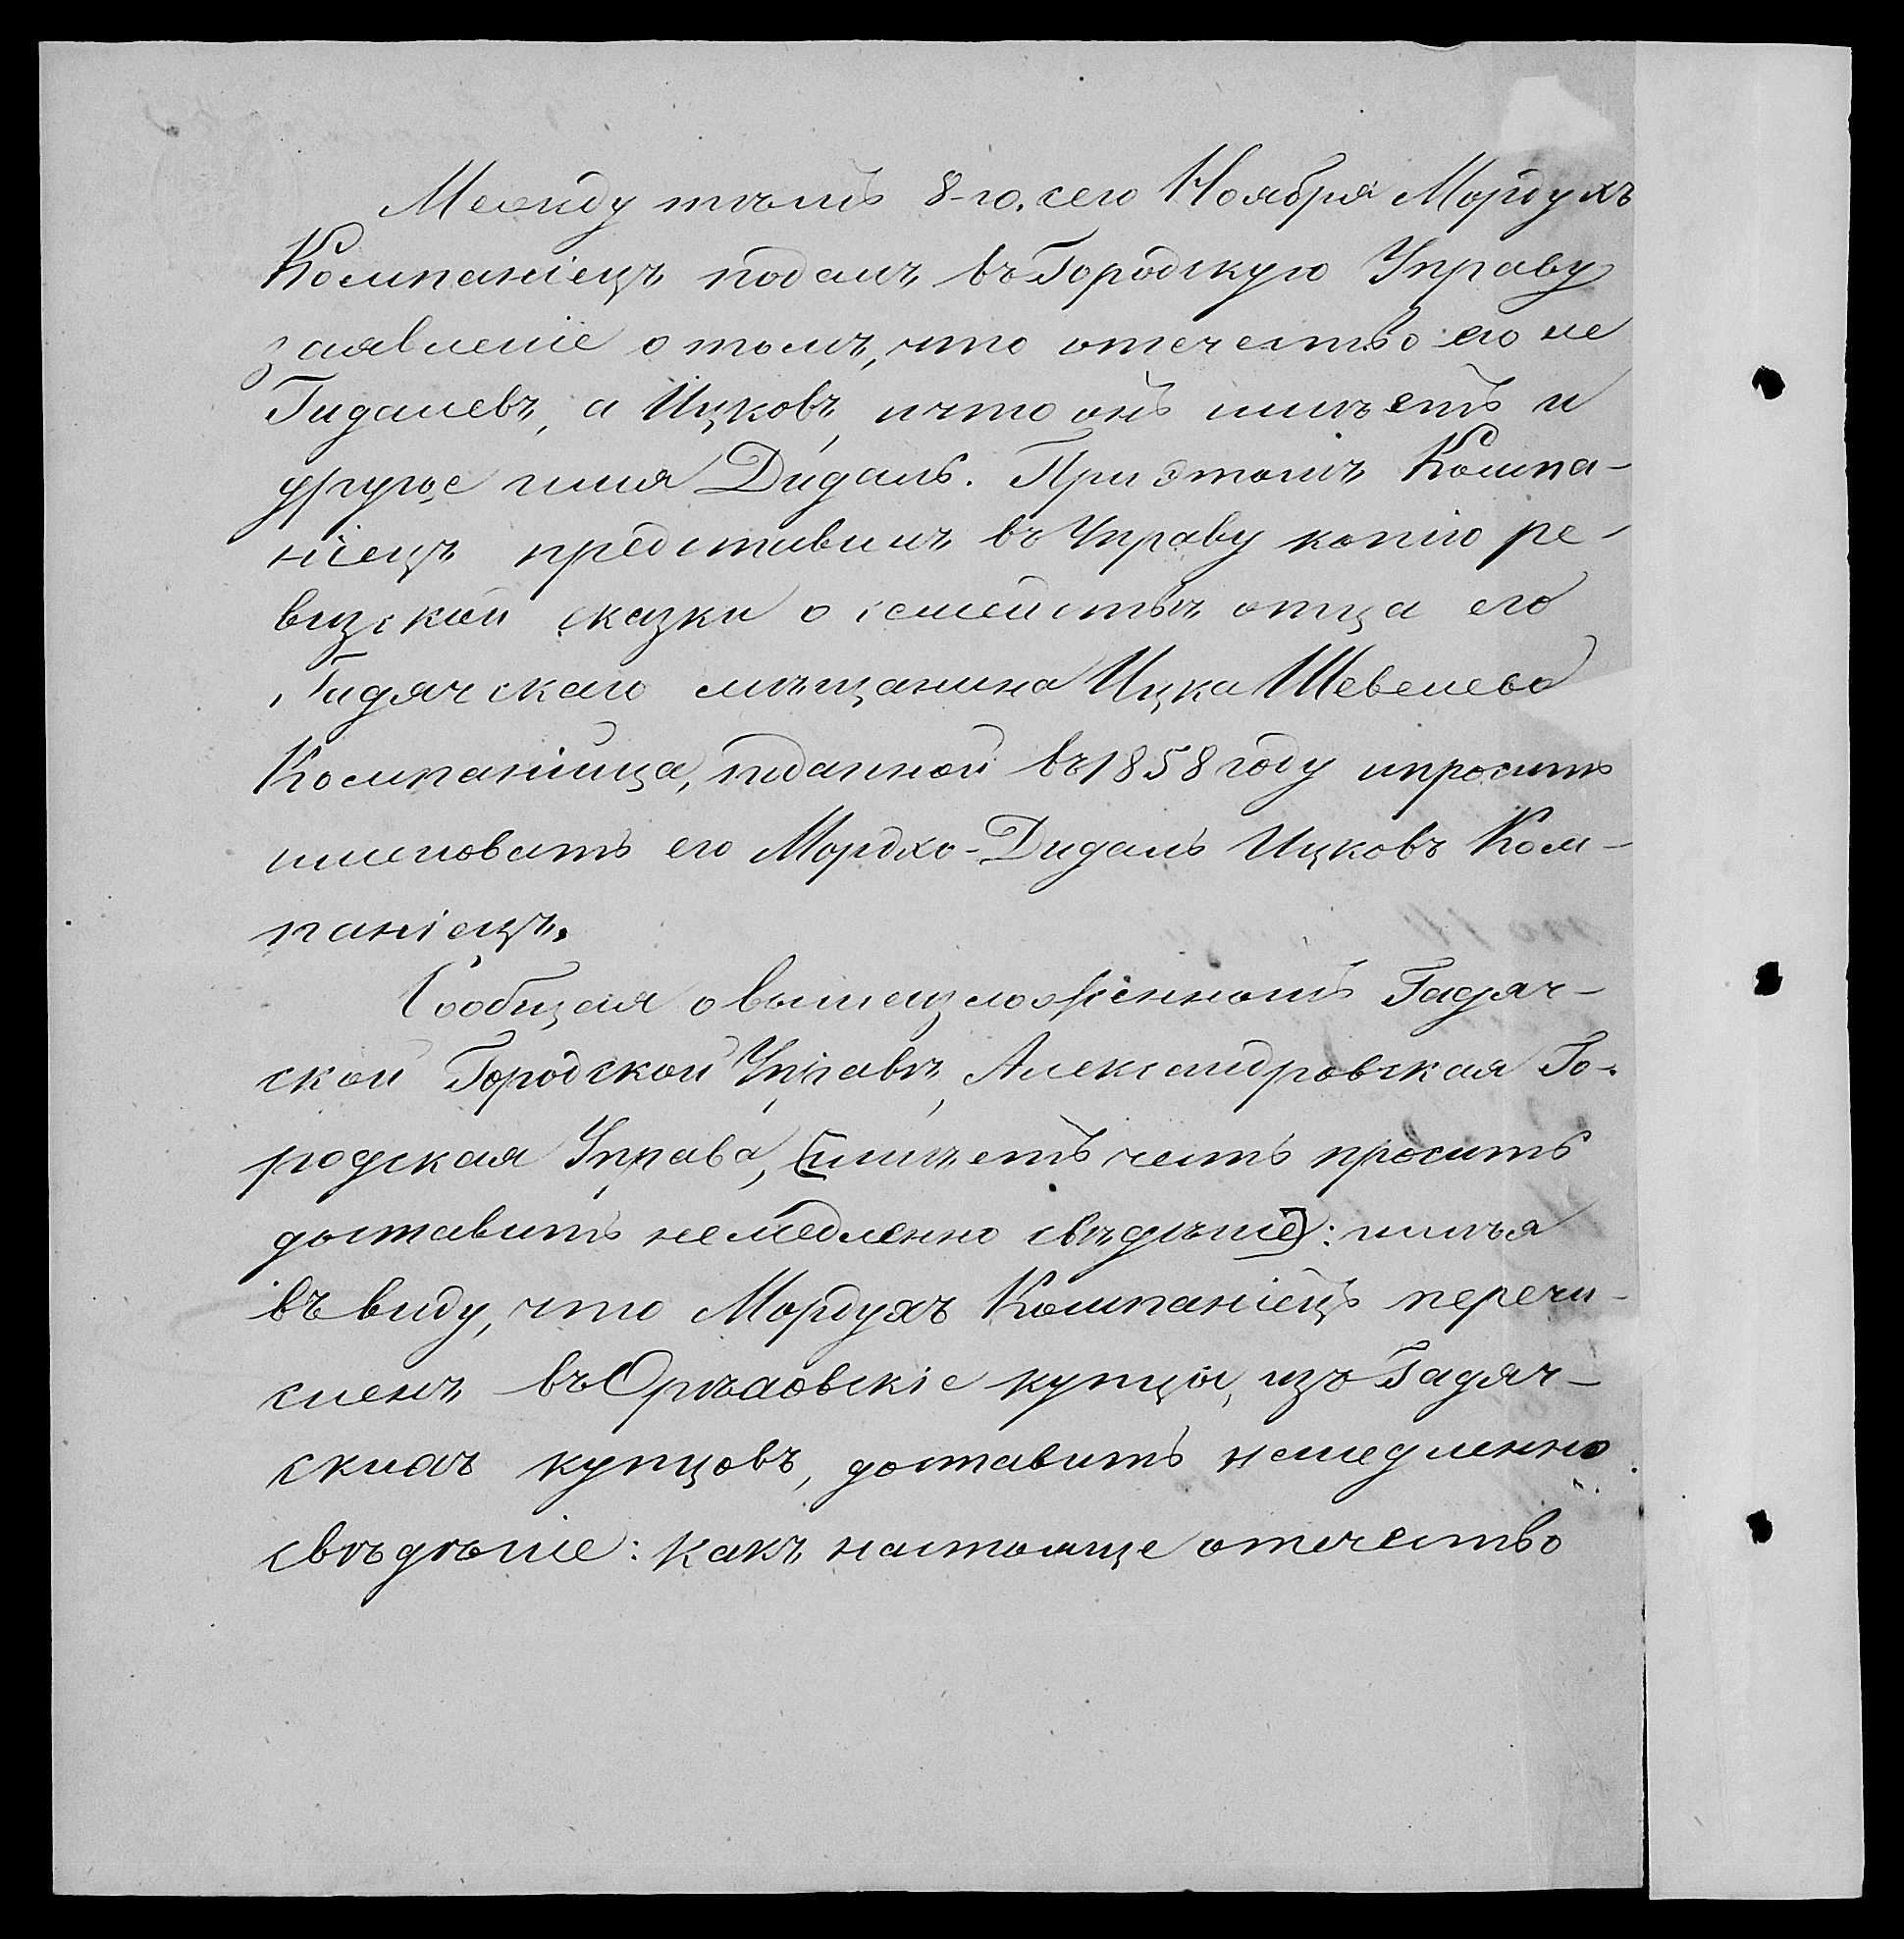 Между тѣмъ 8-го сего Ноября Мордухъ
Компаніецъ подалъ въ Городскую Управу
заявленіе о томъ, что отечество его не
Гидалевъ, а Ицковъ, и что онъ имѣетъ и
другое имя Дидаль. При этомъ Компа-
ніецъ представилъ въ Управу копію ре-
визской сказки о семействѣ отца его
Гадячскаго мѣщанина Ицка Шевелева
Компанійца, поданной въ 1858 году и проситъ
именовать его Мордхо-Дидаль Ицковъ Ком-
паніецъ.
Сообщая о вышеизложенномъ Гадяч-
ской Городской Управѣ, Александровская Го-
родская Управа, [имѣетъ честь просить
доставить немедленно свѣдѣніе]: имѣя
въ виду, что Мордухъ Компаніецъ перечи-
сленъ въ Орѣховскіе купцы, изъ Гадяч-
скихъ купцовъ, доставить немедленно
свѣдѣніе: какъ настоящее отечество